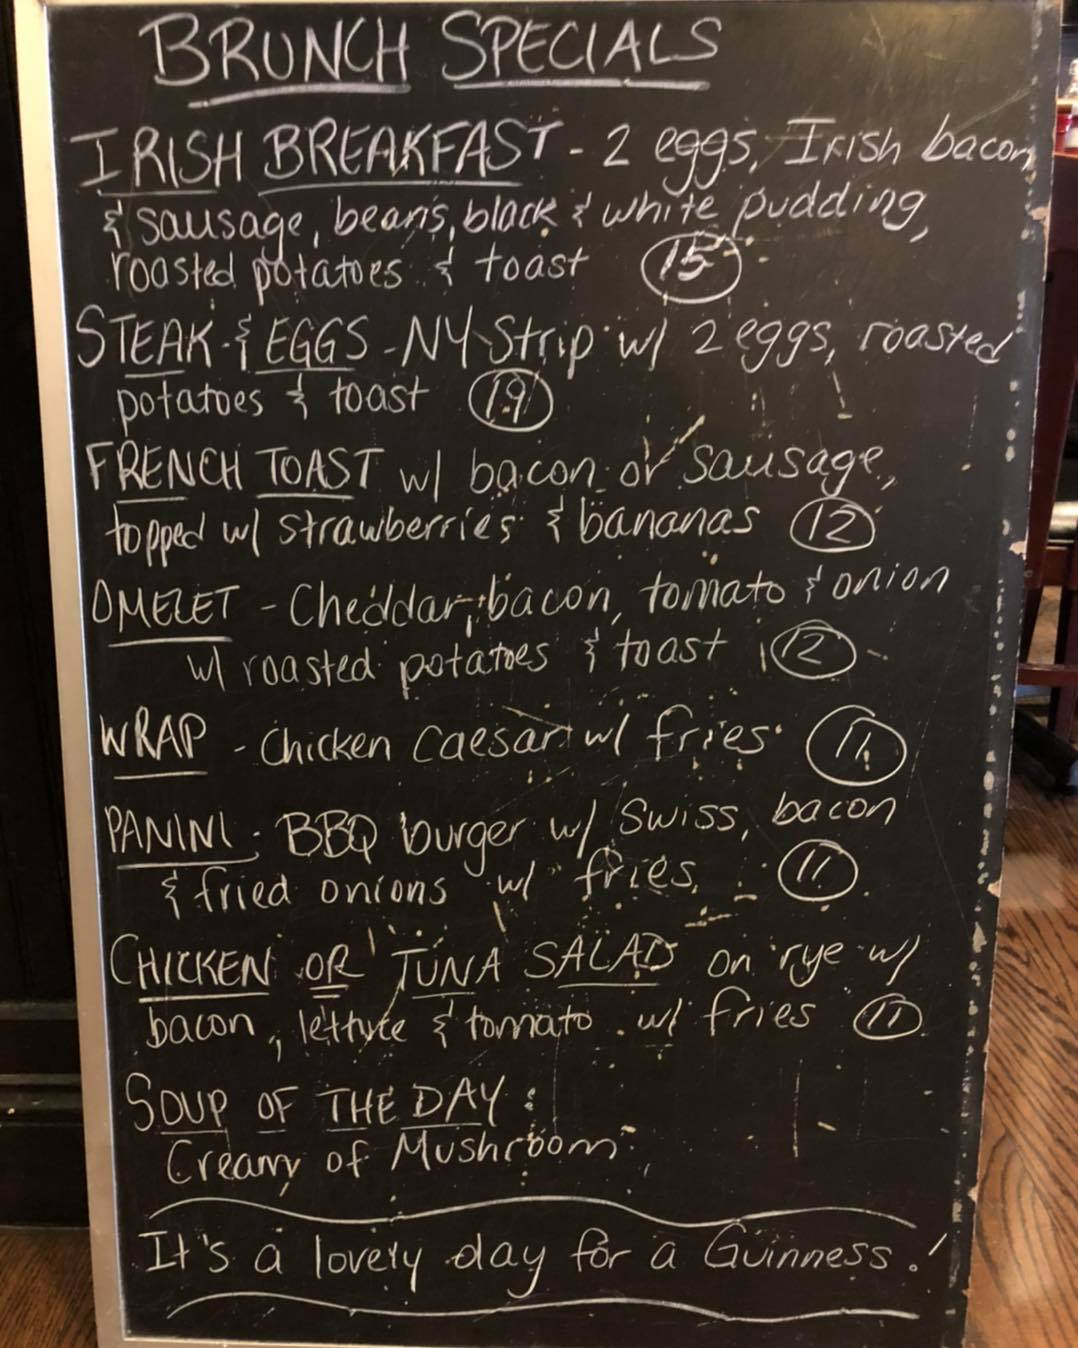 BRUNCH SPECIALS
IRISH BREAKFAST - 2 eggs, Irish bacon,
& sausage, beans, black & white pudding,
roasted potatoes & toast 15
STEAK & EGGS - NY Strip w/ 2 eggs, roasted
potatoes & toast 19
FRENCH TOAST w/ bacon or sausage,
topped w/ strawberries & bananas 12
OMELET - Cheddar, bacon, tomato & onion
w/ roasted potatoes & toast 12
WRAP - Chicken Caesar w/ fries 11
PANINI - BBQ burger w/ Swiss, bacon
& fried onions w/ fries 11
CHICKEN OR TUNA SALAD on rye w/
bacon, lettuce & tomato w/ fries 11
SOUP OF THE DAY:
Creamy of Mushroom
It's a lovely day for a Guinness!